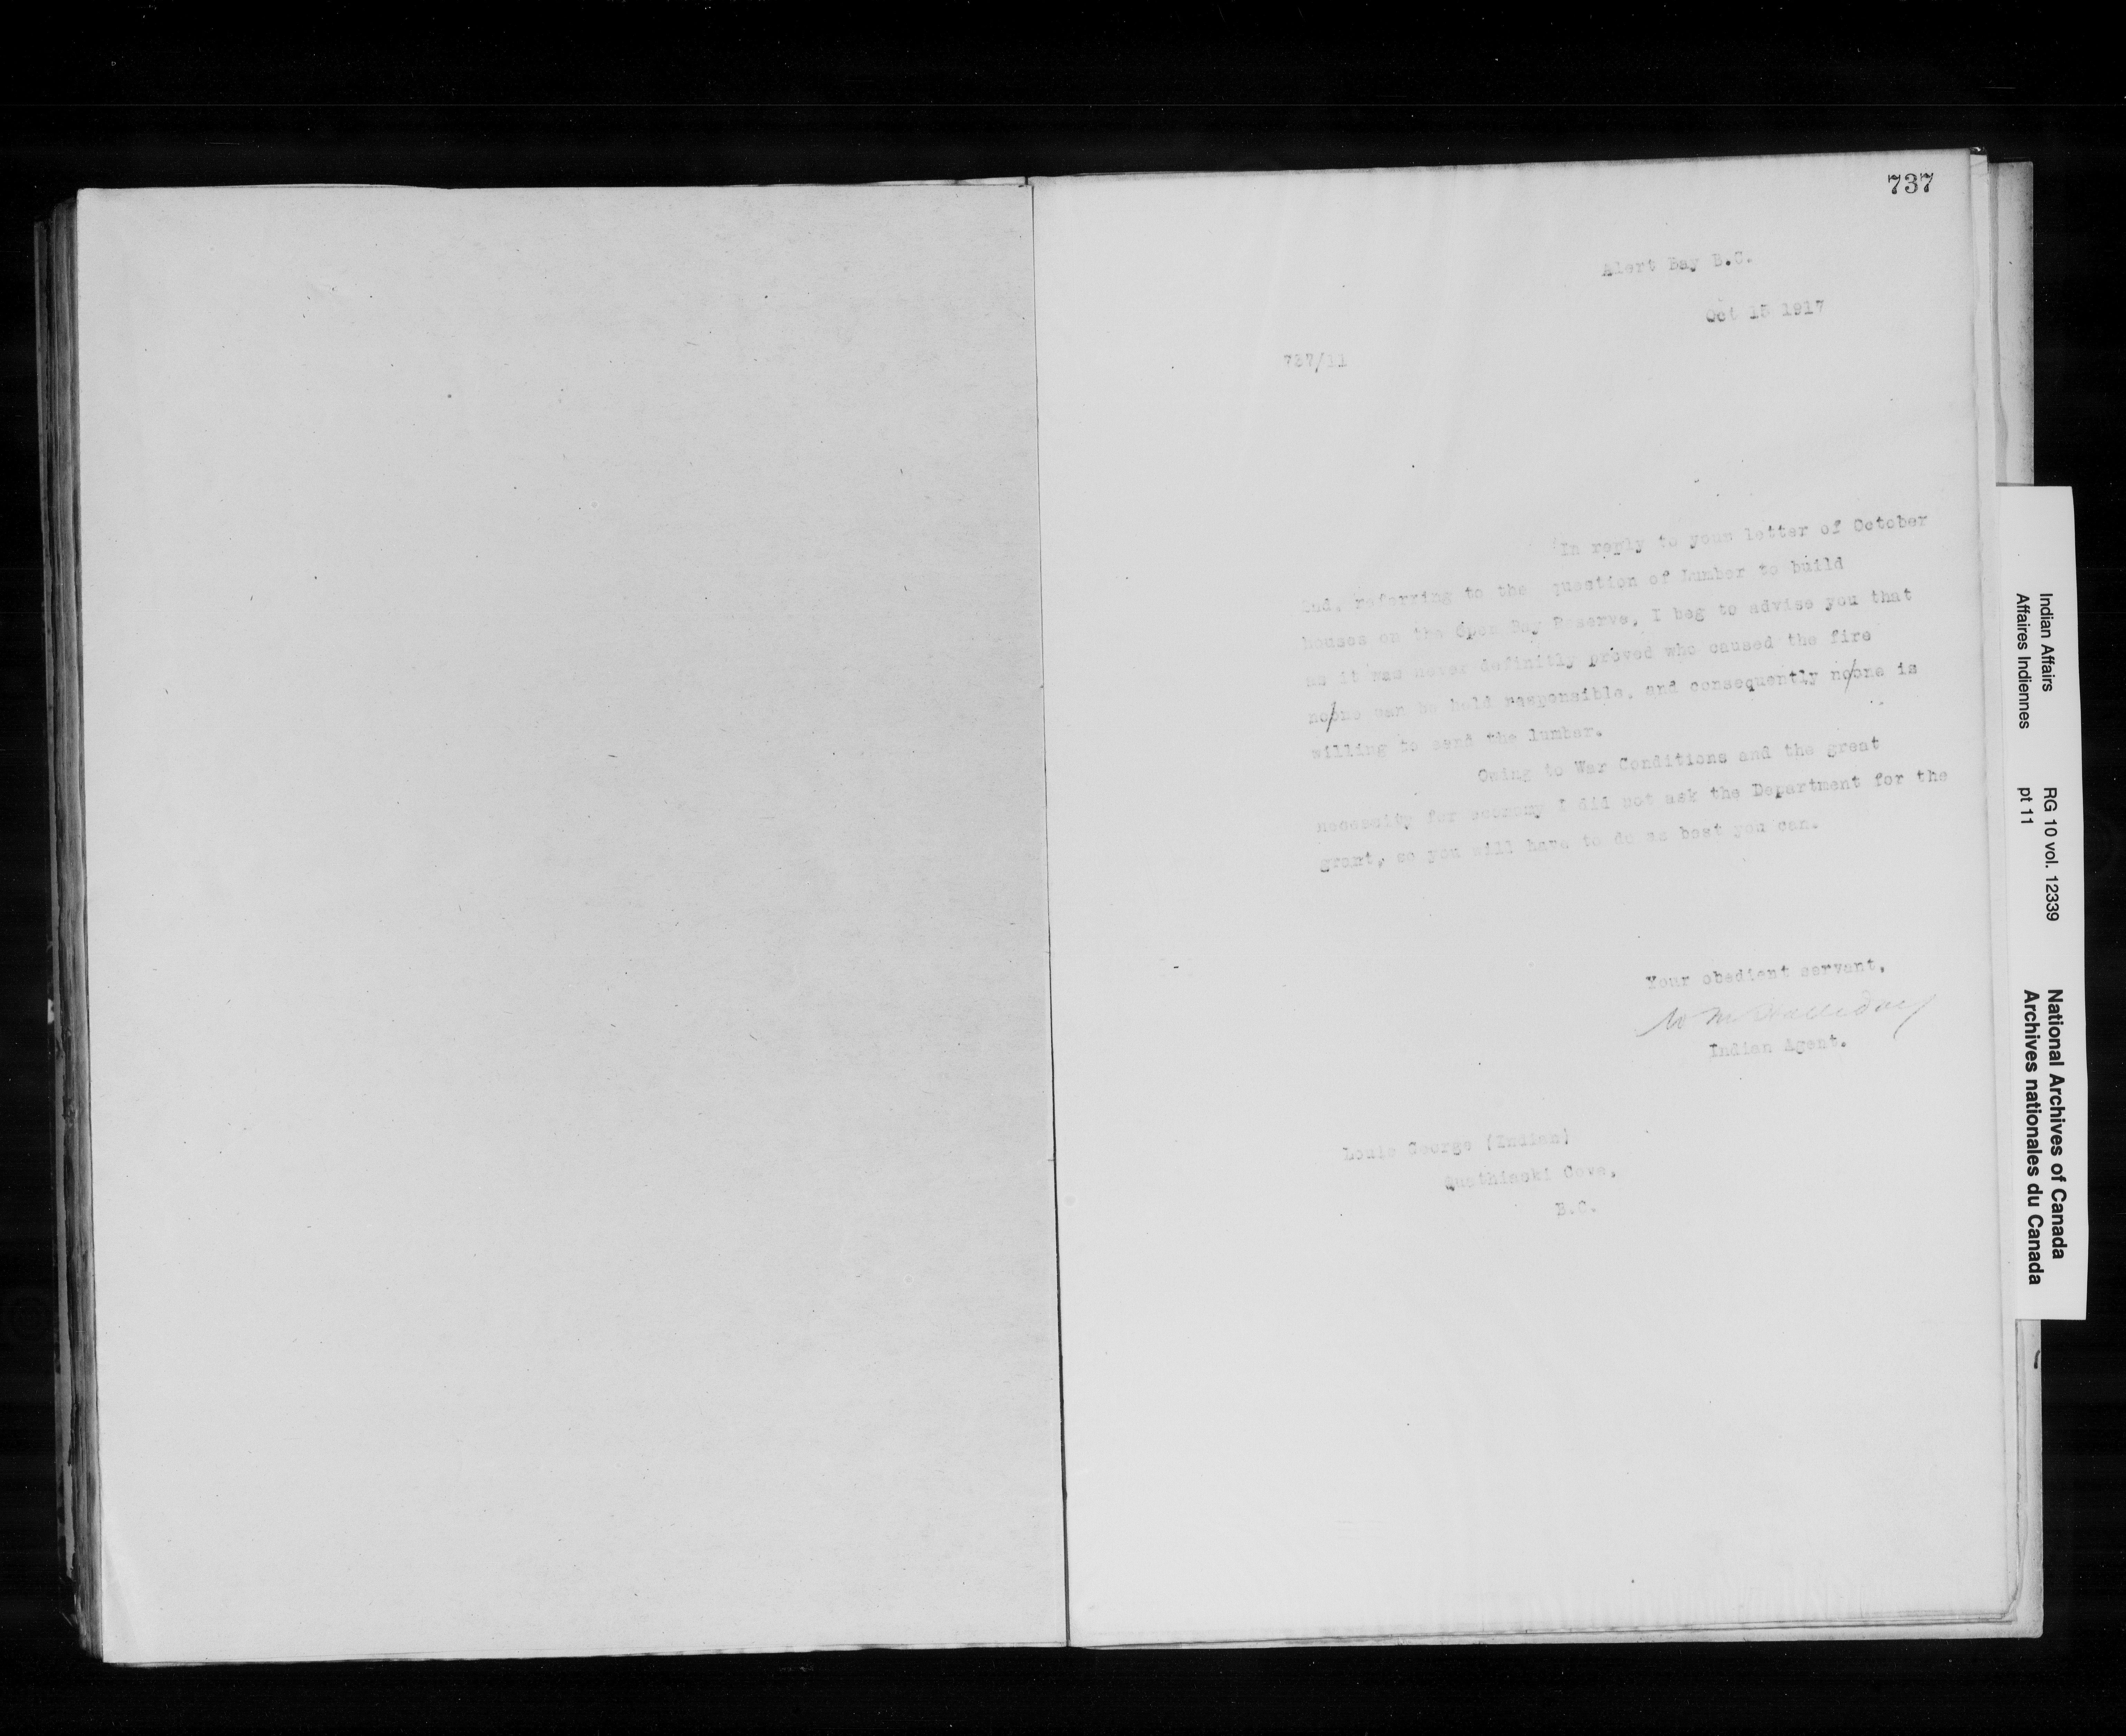 737
Alert Bay B.C.
Oct 15 1917
737/11
In reply to your letter of October
2nd, referring to the question of Lumber to build
houses on the Open Bay Reserve, I beg to advise you that
as it was never definitly proved who caused the fire
no/one can be held responsible, and consequently no/one is
willing to send the lumber.
Owing to War Conditions and the great
necessity for economy I did not ask the Department for the
grant, so you will have to do as best you can.
Your obedient servant,
W M Halliday
Indian Agent.
Louie George (Indian)
Quathiaski Cove,
B.C.
Indian Affairs RG 10 vol. 12339 National Archives of Canada
Affaires Indiennes pt 11 Archives nationales du Canada